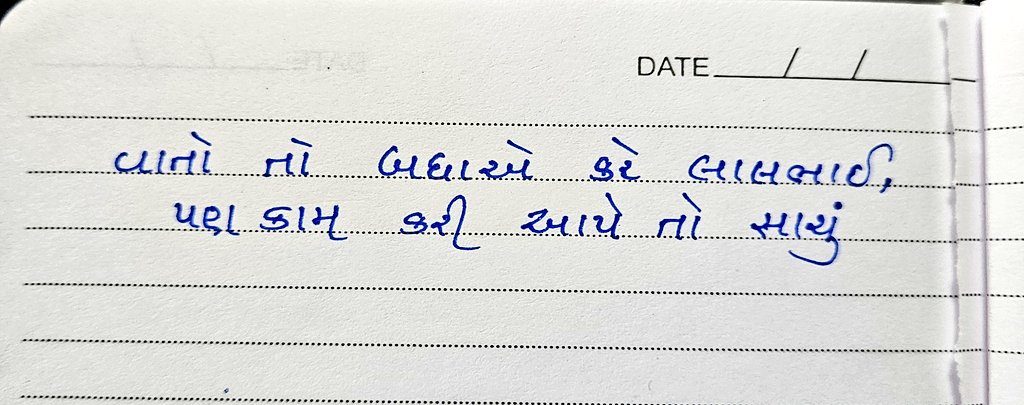 DATE / /
વાતો તો બધાએ કરે લાલભાઈ,
પણ કામ કરી આપે તો સાચું